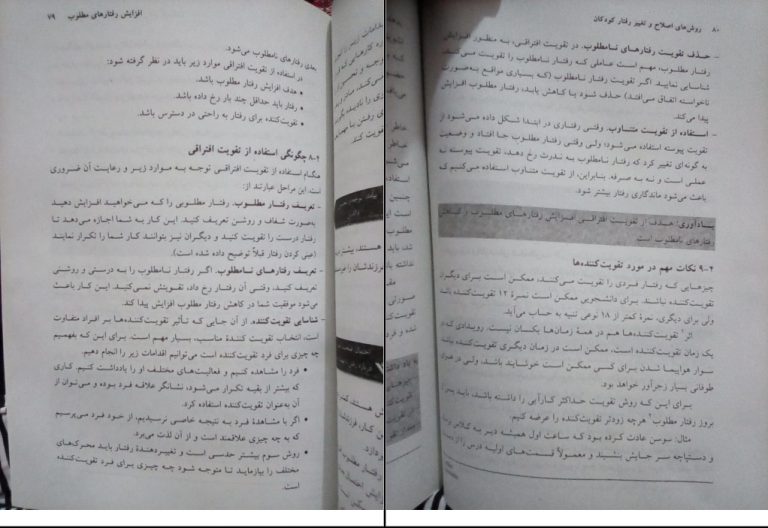 افزایش رفتارهای مطلوب ۷۹
بعدی رفتارهای نامطلوب می‌شود.
در استفاده از تقویت افتراقی موارد زیر باید در نظر گرفته شود:
• هدف افزایش رفتار مطلوب باشد.
• رفتار باید حداقل چند بار رخ داده باشد.
• تقویت‌کننده برای رفتار به راحتی در دسترس باشد.
۸-۴ چگونگی استفاده از تقویت افتراقی
هنگام استفاده از تقویت افتراقی توجه به موارد زیر و رعایت آن ضروری
است. این مراحل عبارتند از:
- تعریف رفتار مطلوب. رفتار مطلوبی را که می‌خواهید افزایش دهید
به‌صورت شفاف و روشن تعریف کنید. این کار به شما اجازه می‌دهد تا
رفتار درست را تقویت کنید و دیگران نیز بتوانند کار شما را تکرار نمایند
(عینی کردن رفتار قبلاً توضیح داده شده است).
- تعریف رفتارهای نامطلوب. اگر رفتار نامطلوب را به درستی و روشنی
تعریف کنید، وقتی آن رفتار رخ داد، تقویتش نمی‌کنید. این کار باعث
می‌شود موفقیت شما در کاهش رفتار مطلوب افزایش پیدا کند.
- شناسایی تقویت‌کننده. از آن جایی که تأثیر تقویت‌کننده‌ها بر افراد متفاوت
است، انتخاب تقویت کنندهٔ مناسب، بسیار مهم است. برای این که بفهمیم
چه چیزی برای فرد تقویت‌کننده است می‌توانیم اقدامات زیر را انجام دهیم.
• فرد را مشاهده کنیم و فعالیت‌های مختلف او را یادداشت کنیم. کاری
که بیشتر از بقیه تکرار می‌شود، نشانگر علاقه فرد بوده و می‌توان از
آن به‌عنوان تقویت‌کننده استفاده کرد.
• اگر با مشاهدهٔ فرد به نتیجه خاصی نرسیدیم، از خود فرد می‌پرسیم
که به چه چیزی علاقمند است و از آن لذت می‌برد.
• روش سوم بیشتر حدسی است و تغییردهندهٔ رفتار باید محرک‌های
مختلف را بیازماید تا متوجه شود چه چیزی برای فرد تقویت‌کننده
است.
۸۰ روش‌های اصلاح و تغییر رفتار کودکان
- حذف تقویت رفتارهای نامطلوب. در تقویت افتراقی، به منظور افزایش
رفتار مطلوب، مهم است عاملی که رفتار نامطلوب را تقویت می‌کند،
شناسایی نمایید. اگر تقویت رفتار نامطلوب (که بسیاری مواقع به‌صورت
ناخواسته اتفاق می‌افتد) حذف شود یا کاهش یابد، رفتار مطلوب افزایش
پیدا می‌کند.
- استفاده از تقویت متناوب. وقتی رفتاری در ابتدا شکل داده می‌شود از
تقویت پیوسته استفاده می‌شود؛ ولی وقتی رفتار مطلوب جا افتاد و وضعیت
به گونه‌ای تغییر کرد که رفتار نامطلوب به ندرت رخ دهد، تقویت پیوسته نه
عملی است و نه به صرفه. بنابراین، از تقویت متناوب استفاده می‌کنیم که
باعث می‌شود ماندگاری رفتار بیشتر شود.
یادآوری: هدف از تقویت افتراقی افزایش رفتارهای مطلوب و کاهش
رفتارهای نامطلوب است
۹-۴ نکات مهم در مورد تقویت‌کننده‌ها
چیزهایی که رفتار فردی را تقویت می‌کنند، ممکن است برای دیگری
تقویت‌کننده نباشد. برای دانشجویی ممکن است نمرهٔ ۱۲ تقویت‌کننده باشد
ولی برای دیگری، نمرهٔ کمتر از ۱۸ نوعی تنبیه به حساب می‌آید.
اثر تقویت‌کننده‌ها هم در همهٔ زمان‌ها یکسان نیست. رویدادی که در
یک زمان تقویت‌کننده است، ممکن است در زمان دیگری تقویت‌کننده نباشد.
سوار هواپیما شدن برای کسی ممکن است خوشایند باشد، ولی در هوای
طوفانی بسیار زجرآور خواهد بود.
برای این که روش تقویت حداکثر کارآیی را داشته باشد، باید پس از
بروز رفتار مطلوب هرچه زودتر تقویت‌کننده را عرضه کنیم.
مثال: سوسن عادت کرده بود که ساعت اول همیشه دیر به کلاس برود
و دستپاچه سر جایش بنشیند و معمولاً قسمت‌های اولیه درس را از دست